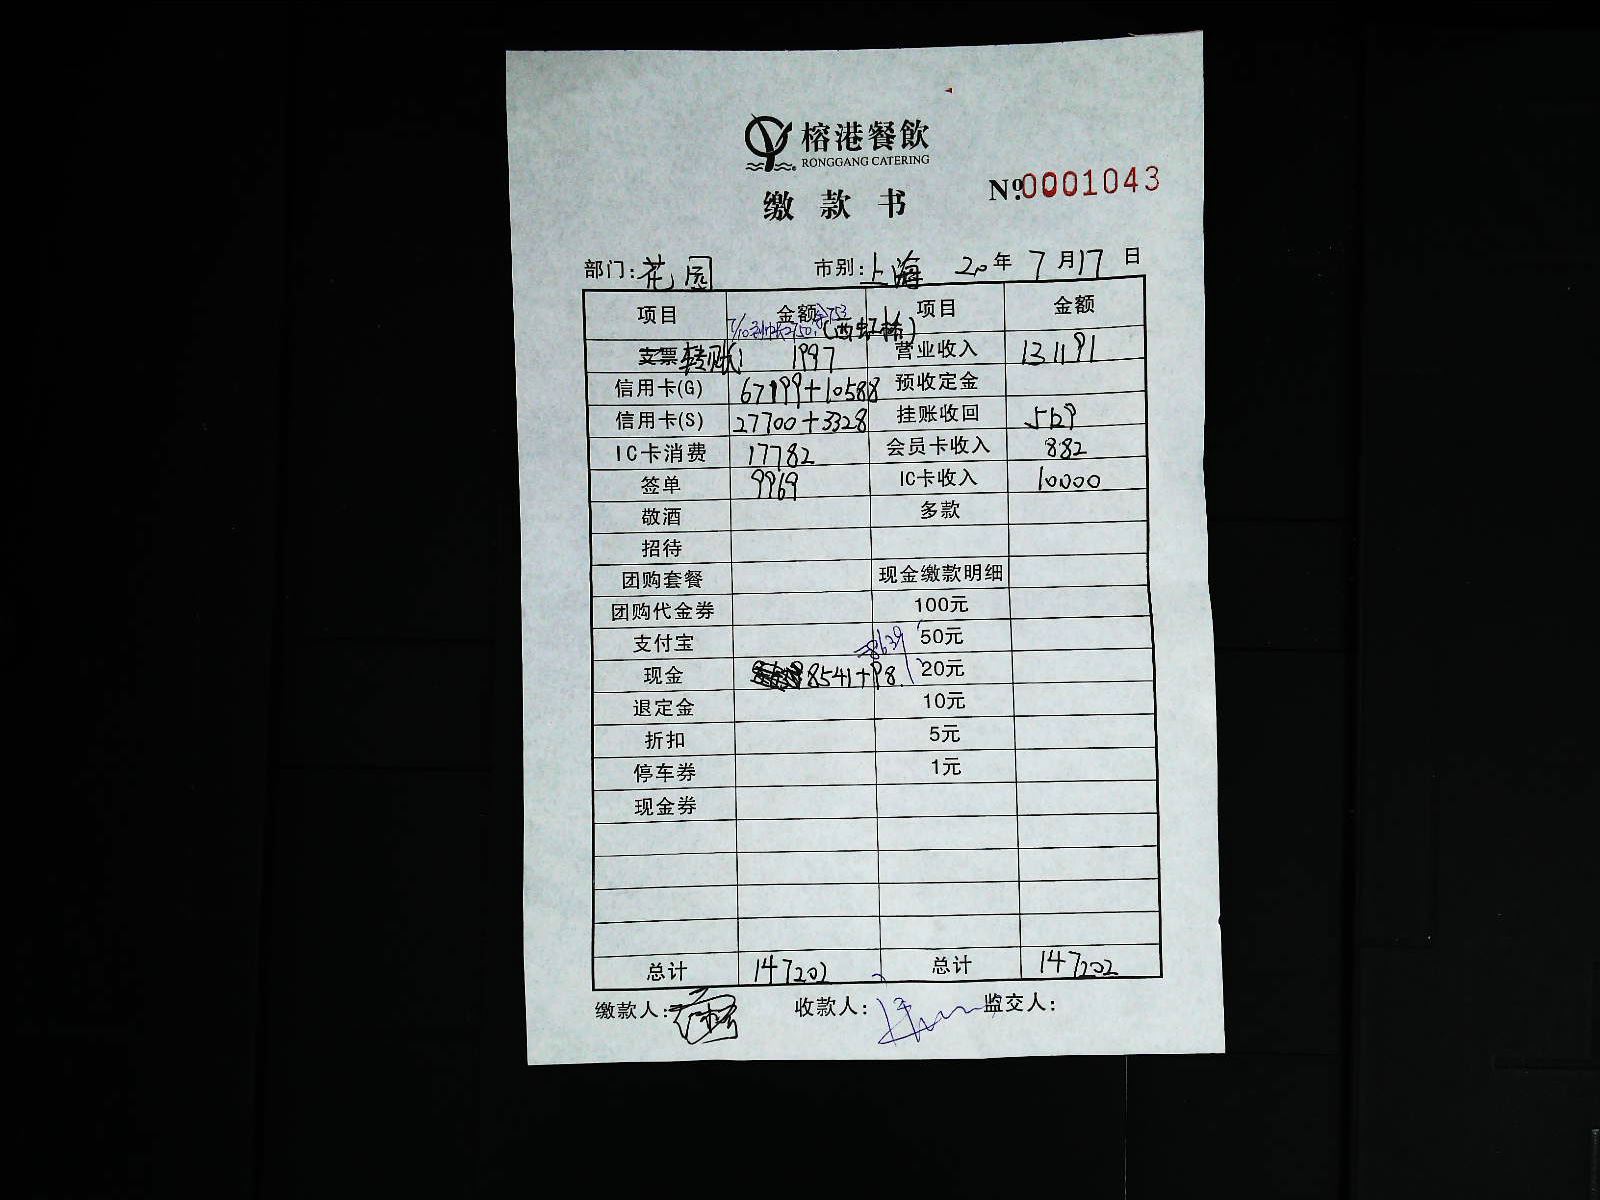 榕港餐飲
RONGGANG CATERING
缴款书
Nº0001043
部门:花园 市别:上海 20 年 7 月 17 日
项目 金额 项目 金额
支票 转账 1997 营业收入 131191
信用卡(G) 67199+10588 预收定金
信用卡(S) 27700+3328 挂账收回 5129
IC卡消费 17782 会员卡收入 882
签单 9969 IC卡收入 10000
敬酒 多款
招待
团购套餐 现金缴款明细
团购代金券 100元
支付宝 50元
=8639
现金 8541+98 20元
退定金 10元
折扣 5元
停车券 1元
现金券
总计 147202 总计 147202
缴款人: 收款人: 监交人: